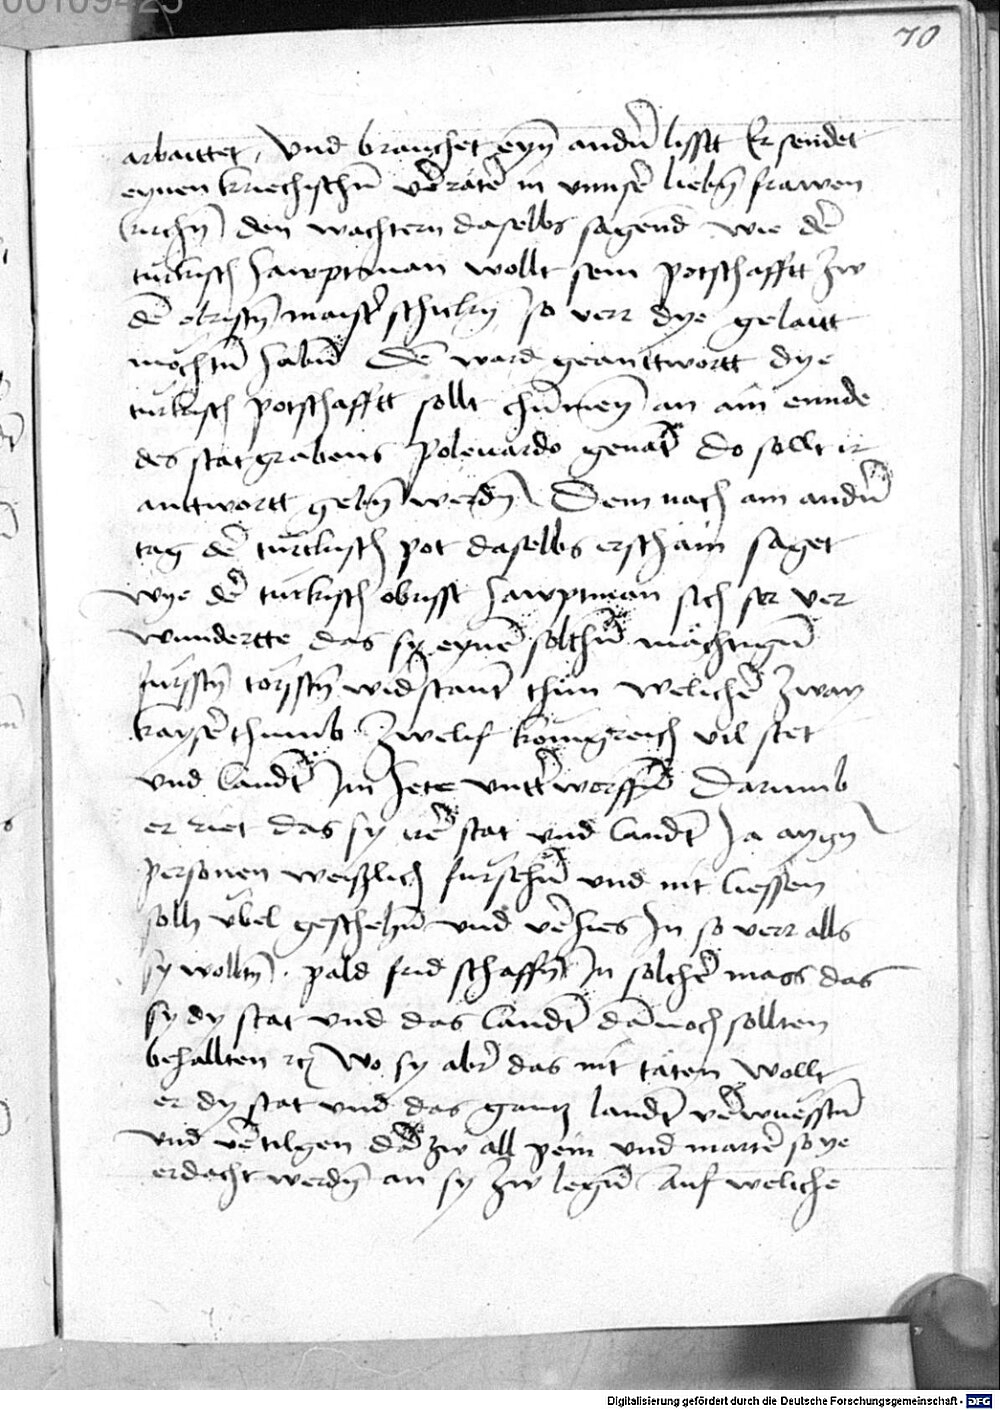 00109425
70
arbaittet, Vnd brauchet eyn̄ andn̄ lisstt Er sendet
eynen kriechischn̄ v̄ratē in vnnsē liebn̄ frawen
kirchn̄ den wachtern daselbs sagend wie dē
türkisch hawptman wollt sein potschafftt zw
dē obristn̄ maistē schickn̄ so verr dye gelaitt
möchtn̄ habn̄ Dē ward geanttwortt dye
türkisch potschafftt sollt chūmen an ain ennde
des statgrabens Polenardo genāt Do sollt ir
anttwortt gebn̄ werdn̄ Dem nach am andn̄
tag dē türckisch pot daselbs erschain saget
wye dē türkisch obrisst hawptman sich ser ver
wundertte das sy eynē solchn̄ mächtign̄
fürsstn̄ törsstn̄ widstant thün welichē zway
kaysērthumb Zwelif königreich vil stet
vnd landt Im hete vnttworffn̄ Darumb
er riet das sy irē stat vnd landt Ja aygn̄
personen weißlich fürsehn̄ vnd nit liessen
solh vbel geschehn̄ vnd v̄hies In so verr alls
sy wolltn̄. pald frid schaffn̄ In solchē mass das
sy dy stat vnd das landt dānoch sollten
behallten rc Wo sy abr̄ das nit täten wollt
er dy stat vnd das gantz landt v̄wuesstn̄
vnd v̄tilgen dā zw all pein vnd martē so ye
erdacht werdn̄ an sy zw legn̄ Auf weliche
Digitalisierung gefördert durch die Deutsche Forschungsgemeinschaft - DFG